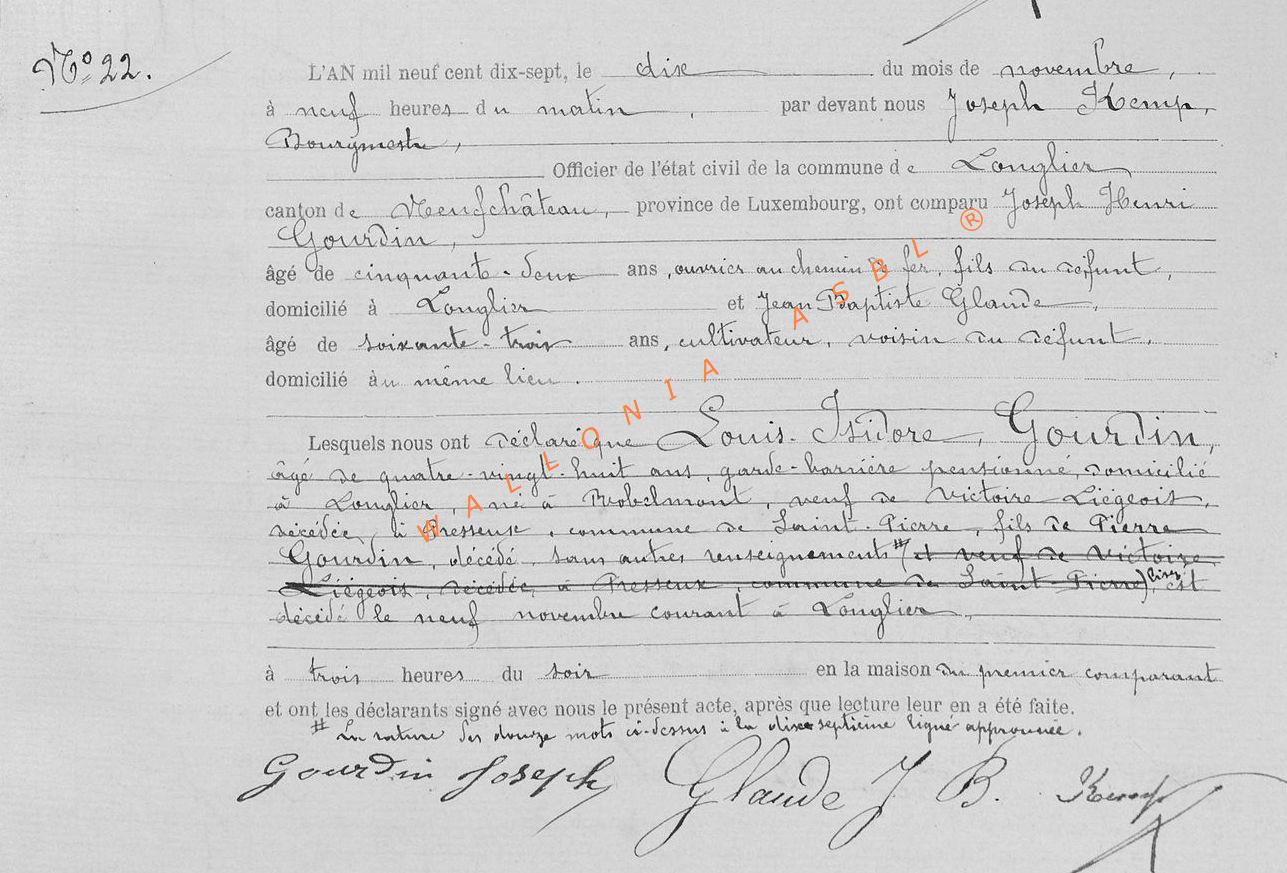 N° 22.
L'AN mil neuf cent dix-sept, le dix du mois de novembre,
à neuf heures du matin, par devant nous Joseph Kemp,
Bourgmestre,
Officier de l'état civil de la commune de Longlier
canton de Neufchâteau, province de Luxembourg, ont comparu Joseph Henri
Gourdin,
âgé de cinquante-deux ans, ouvrier au chemin de fer, fils du défunt,
domicilié à Longlier et Jean Baptiste Glaude,
âgé de soixante-trois ans, cultivateur, voisin du défunt,
domicilié au même lieu.
Lesquels nous ont déclaré que Louis-Isidore, Gourdin,
âgé de quatre-vingt-huit ans, garde-barrière pensionné, domicilié
à Longlier, né à Robelmont, veuf de Victoire Liégeois,
décédée, à Presseux, commune de Saint-Pierre, fils de Pierre
Gourdin, décédé, sans autres renseignements # (et veuf de Victoire
Liégeois, décédée, à Presseux, commune de Saint-Pierre) est
décédé le neuf novembre courant à Longlier,
à trois heures du soir en la maison du premier comparant
et ont les déclarants signé avec nous le présent acte, après que lecture leur en a été faite.
# La rature des douze mots ci-dessus à la dix-septième ligne approuvée.
Gourdin Joseph Glaude J B. Kemp
WALLONIA ASBL ®